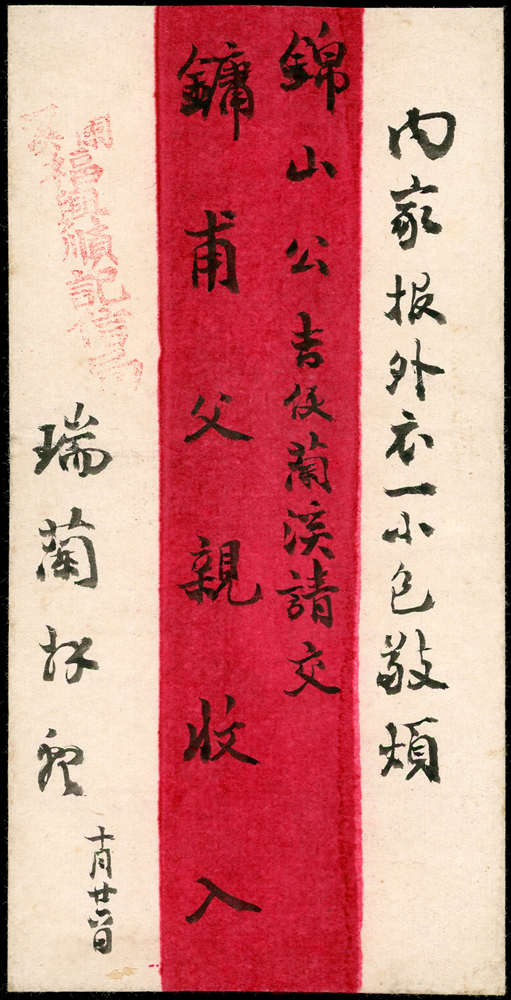 內家报外衣一小包敬煩
錦山公吉便蘭溪請交
鏞甫父親收入
福興順記信局
瑞蘭
十月廿日